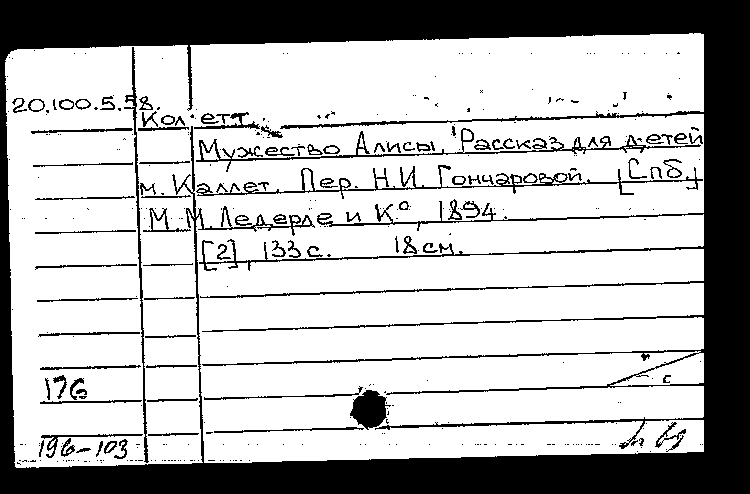 20.100.5.58.
Колетт
Мужество Алисы. Рассказ для детей
м. Каллет. Пер. Н.И. Гончаровой. [Спб.]
М.М. Ледерле и К°, 1894.
[2], 133 с. 18 см.
с
176
196-103